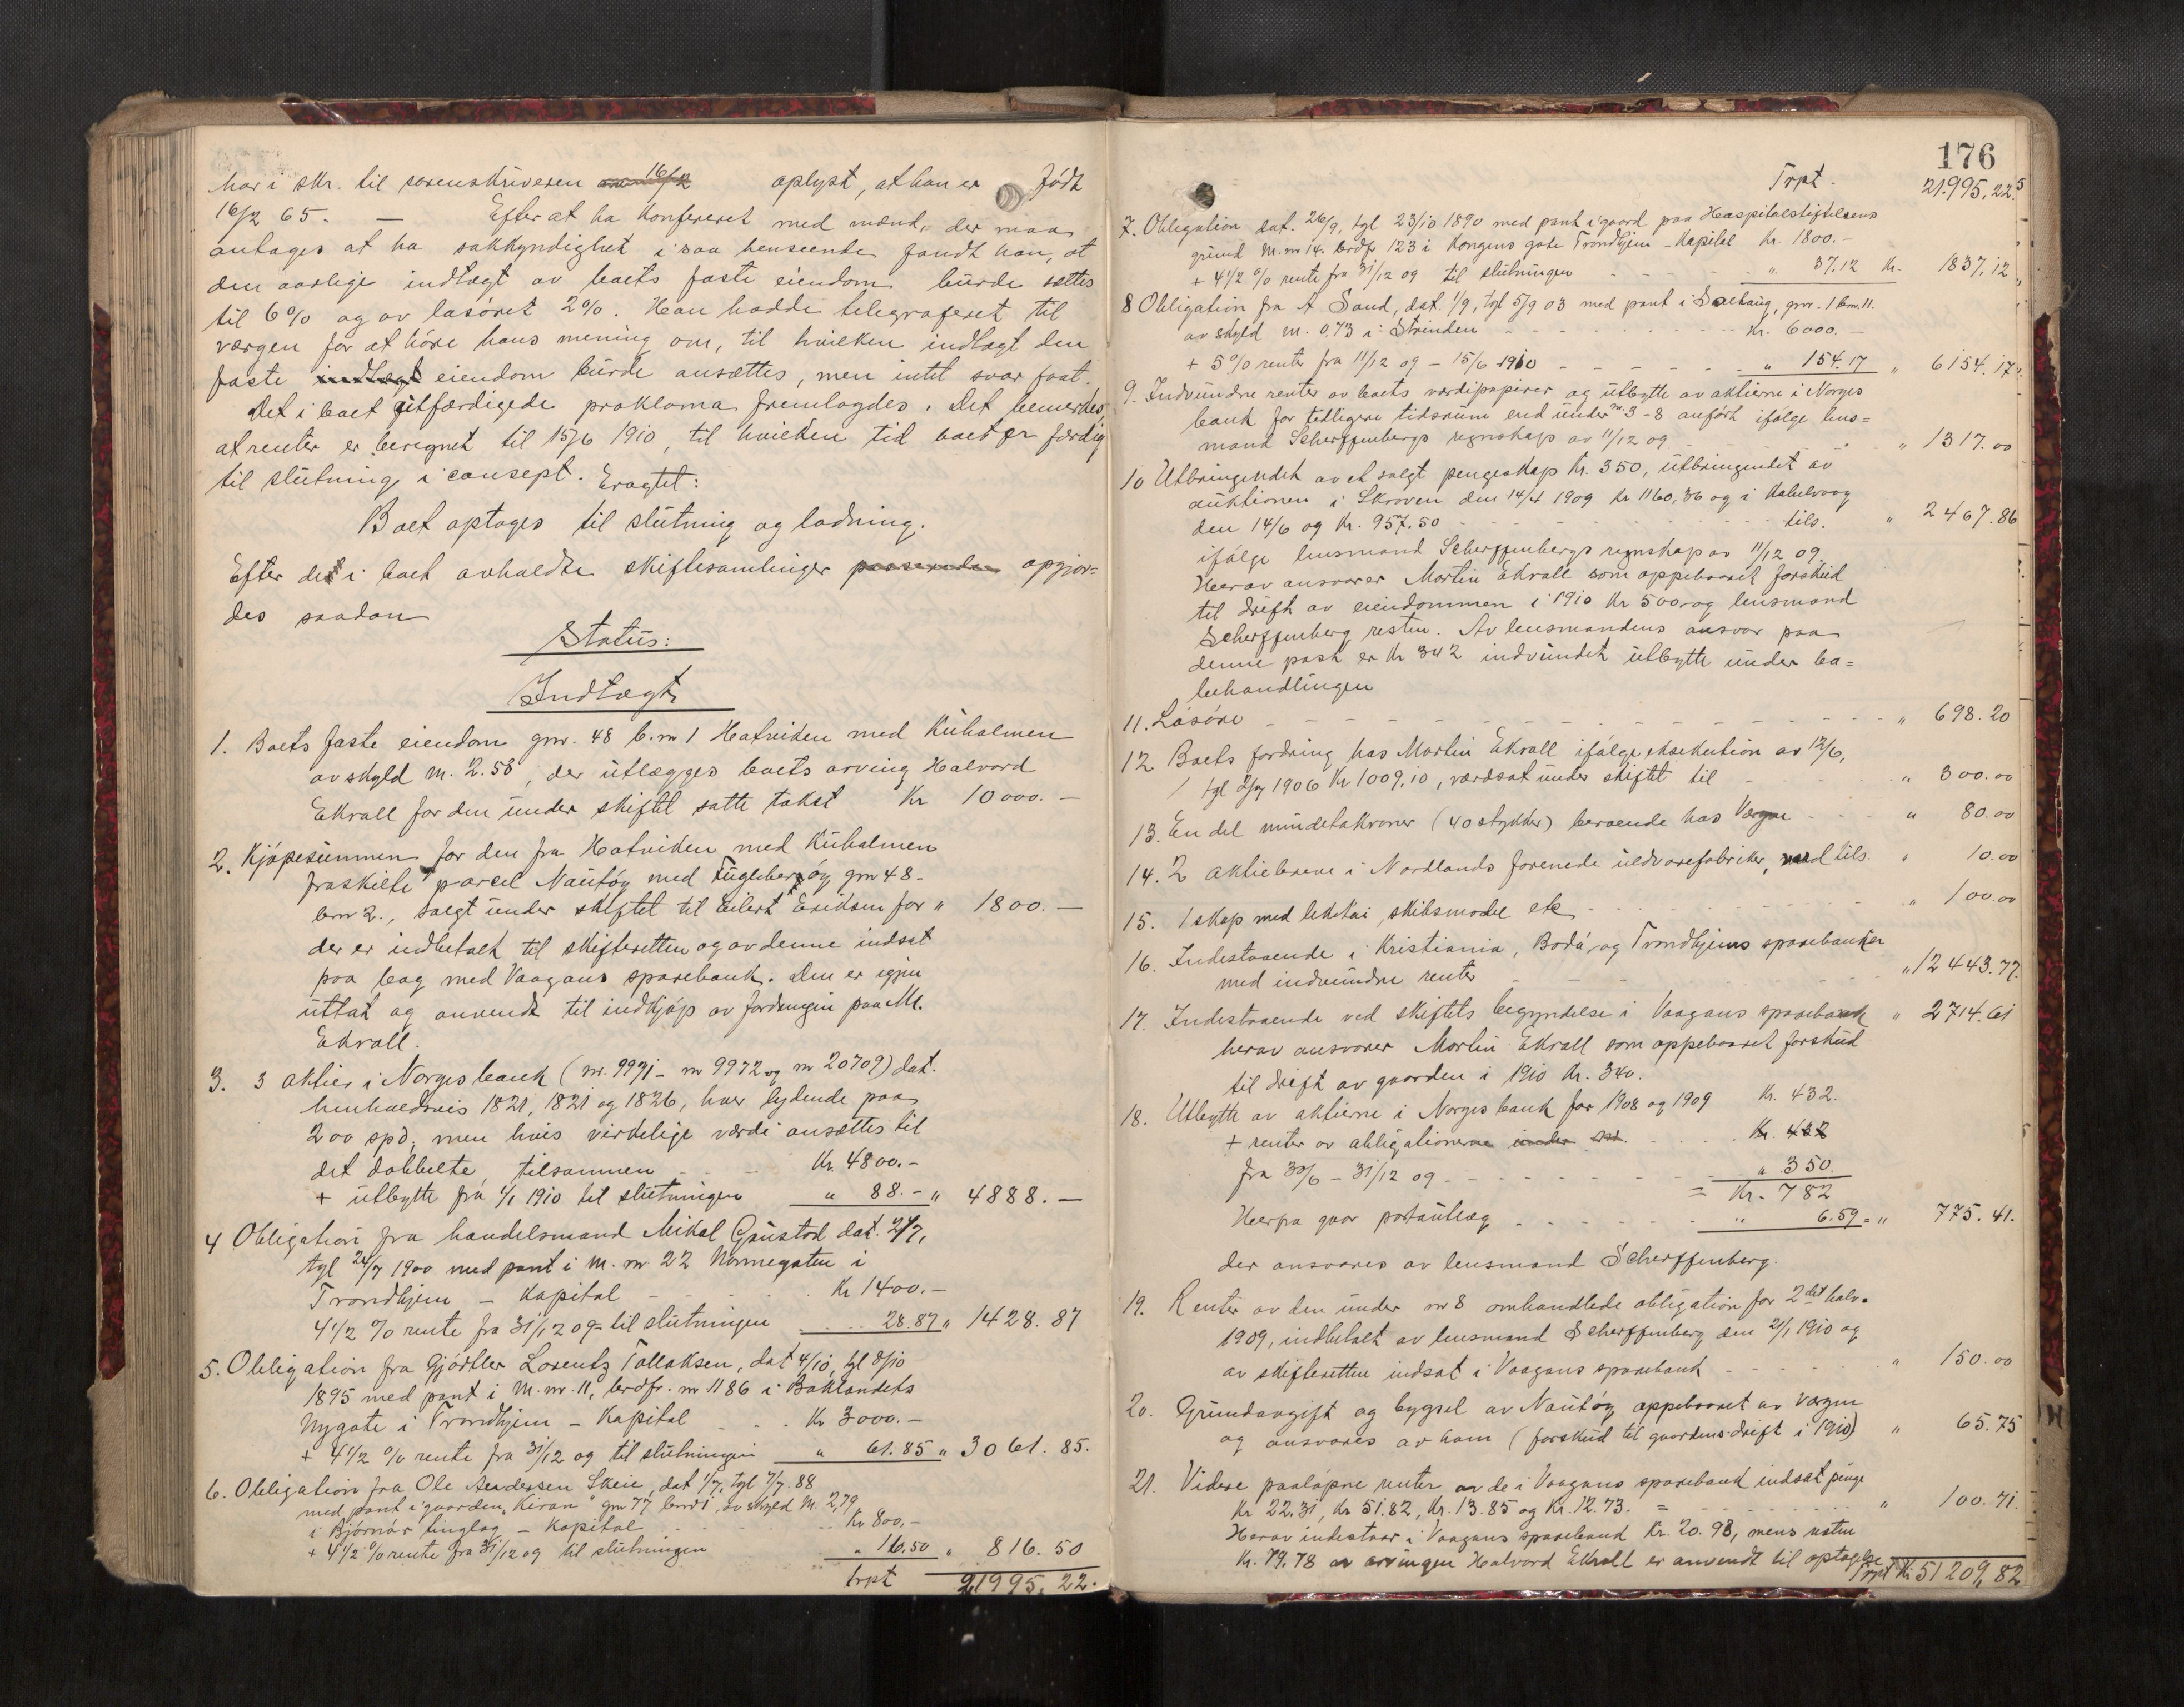 har i skr. til sorenskriveren 16/2 oplyst, at han er født
16/2 65. — Efter at ha konfereret med mænd, der maa
antages at ha sakkyndighet i saa henseende fandt han, at
den aarlige indtægt av boets faste eiendom burde sættes
til 6% og av løsøret 2%. Han hadde telegraferet til
værgen for at høre hans mening om, til hvilken indtægt den
faste indtægt eiendom burde ansættes, men intet svar faat.
Det i boet utfærdigede proklama fremlagdes. Det bemerkes,
at renter er beregnet til 15/6 1910, til hvilken tid boet er færdig
til slutning i consept. Eragtet:
Boet optages til slutning og lodning.
Efter det i boet avholdte skiftesamlinger passerede opgjor=
des saadan
Status:
Indtægt
1. Boets faste eiendom gnr. 48 b.nr 1 Hatviken med Kuholmen
av skyld m. 2.58, der utlægges boets arving Halvard
Ekrall for den under skiftet satte takst Kr 10000.—
2. Kjøpesummen for den fra Hatviken med Kuholmen
fraskilte parcel Nautøy med Fugleberøy gnr 48-
bnr 2., solgt under skiftet til Eilert Eriksen for " 1800.—
der er indbetalt til skifteretten og av denne indsat
paa bog med Vaagans sparebank. Den er igjen
uttat og anvendt til indkjøp av fordringen paa M.
Ekrall.
3. 3 aktier i Norges bank (nr. 9971- nr 9972 og nr 20709) dat.
henholdsvis 1821, 1821 og 1826, hver lydende paa
200 spd; men hvis virkelige værdi ansættes til
det dobbelte tilsammen - - Kr. 4800.-
+ utbytte fra 1/1 1910 til slutningen " 88.- " 4888.—
4 Obligation fra handelsmand Mikal Granstad dat. 21/7,
tgl 24/7 1900 med pant i M. nr 22 Nonnegaten i
Trondhjem - Kapital - - - Kr 1400.-
4 1/2 % rente fra 31/12 09 til slutningen 28.87 " 1428.87
5. Obligation fra Gjørtler Lorentz Tollaksen, dat 4/10, tgl 8/10
1895 med pant i M. nr. 11, brdfr. nr 1186 i Baklandets
Nygate i Trondhjem - Kapital - - Kr 3000.-
+ 4 1/2 % rente fra 31/12 09 til slutningen " 61.85 " 3061.85.
6. Obligation fra Ole Andersen Skeie, dat 1/7, tgl 7/7. 88
med pant i gaarden "Kiran" gnr 77, bnr 1, av skyld M. 2,79
i Bjørnør tinglag - Kapital - - Kr 800.-
+ 4 1/2 % rente fra 31/12 09 til slutningen " 16.50 " 816.50
trpt 21995.22.
176
Trpt. 21995,22.5
7. Obligation dat. 26/9, tgl 23/10 1890 med pant i gaard paa Hospitalsstiftelsens
grund M. nr 14. brdfr 123 i Kongens gate Trondhjem - Kapital Kr. 1800.-
+ 4 1/2 % rente fra 31/12 09 til slutningen - - - " 37.12 Kr. 1837,12
8 Obligation fra A Sand, dat. 1/9, tgl 5/9 03 med pant i , gnr. 1 bnr. 11.
av skyld m. 0.73 i Strinden - - - Kr. 6000.-
+ 5% rente fra 11/12 09 - 15/6 1910 - - - " 154.17 " 6154.17.
9. Indvundne renter av boets værdipapirer og utbytte av aktierne i Norges
bank for tidligere tidsrum end under nr. 3-8 anført ifølge lens=
mand Scherffenbergs regnskap av 11/12 09 - - " 1317.00
10 Utbringendet av et solgt pengeskap Kr. 350, utbringendet av
auktionen i Skroven den 14/4 1909 Kr 1160,36 og i Kabelvaag
den 14/6 og Kr. 957.50 - - - tils. " 2467.86
ifølge lensmand Scherffenbergs regnskap av 11/12 09.
Herav ansvarer Martin Ekrall som oppebaaret forskud
til drift av eiendommen i 1910 Kr 500 og lensmand
Scherffenberg resten. Av lensmandens ansvar paa
denne post er Kr 342 indvundet utbytte under bo=
behandlingen
11. Løsøre - - - " 698.20
12 Boets fordring hos Martin Ekrall ifølge eksekution av 12/6,
tgl 2/7 1906 Kr 1009,10, værdsat under skiftet til - - " 300.00
13. En del mindekroner (40 stykker) beroende hos Værgen - - " 80.00
14. 2 aktiebreve i Nordlands forenede uldvarefabriker, værd tils. " 10.00
15. 1 skap med leketøi, skibsmodel etc - - - " 100.00
16. Indestaaende i Kristiania, Bodø og Trondhjems sparebanker
med indvundne renter - - - " 12443.77.
17. Indestaaende ved skiftets begyndelse i Vaagans sparebank " 2714.61
herav ansvarer Martin Ekrall som oppebaaret forskud
til drift av gaarden i 1910 Kr. 340.
18. Utbytte av aktierne i Norges bank for 1908 og 1909 Kr. 432.
+ renter av obligationerne under nr. - - Kr. 432
fra 30/6 - 31/12 09 - - - " 350.
= Kr. 782
Herfra gaar portoutlæg - - - " 6.59 = " 775.41.
der ansvares av lensmand Scherffenberg.
19. Renter av den under nr 8 omhandlede obligation for 2det halv.
1909, indbetalt av lensmand Scherffenberg den 21/1 1910 og
av skifteretten indsat i Vaagans sparebank - - - " 150.00
20. Grundavgift og bygsel av Nautøy oppebaaret av værgen
og ansvares av ham (forskud til gaardens drift i 1910) " 65.75
21. Videre paaløpne renter av de i Vaagans sparebank indsat penge
Kr 22.31, Kr 51.82, Kr. 13.85 og Kr. 12.73. = - - - " 100.71.
Herav indestaar i Vaagans sparebank Kr. 20.93, mens resten
Kr. 79.78 av arvingen Halvard Ekrall er anvendt til optagelse
Trpt Kr 51209,82